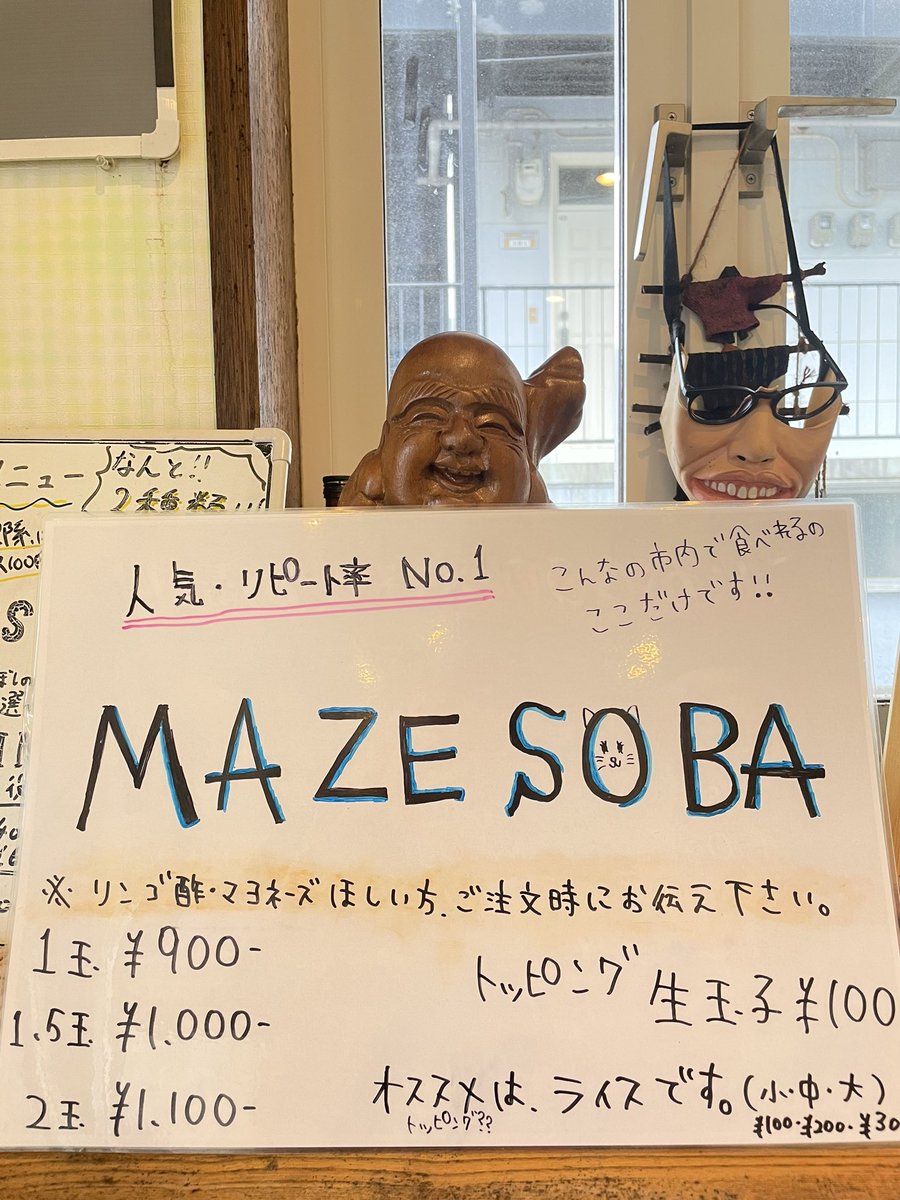 メニュー
なんと!!
2種類!!!
人気・リピート率 No.1
こんなの市内で食べれるの
ここだけです!!
MAZE SOBA
※リンゴ酢・マヨネーズほしい方、ご注文時にお伝え下さい。
1玉 ¥900-
1.5玉 ¥1.000-
2玉 ¥1.100-
トッピング 生玉子 ¥100
オススメは、ライスです。(小・中・大)
トッピング??
¥100・¥200・¥30